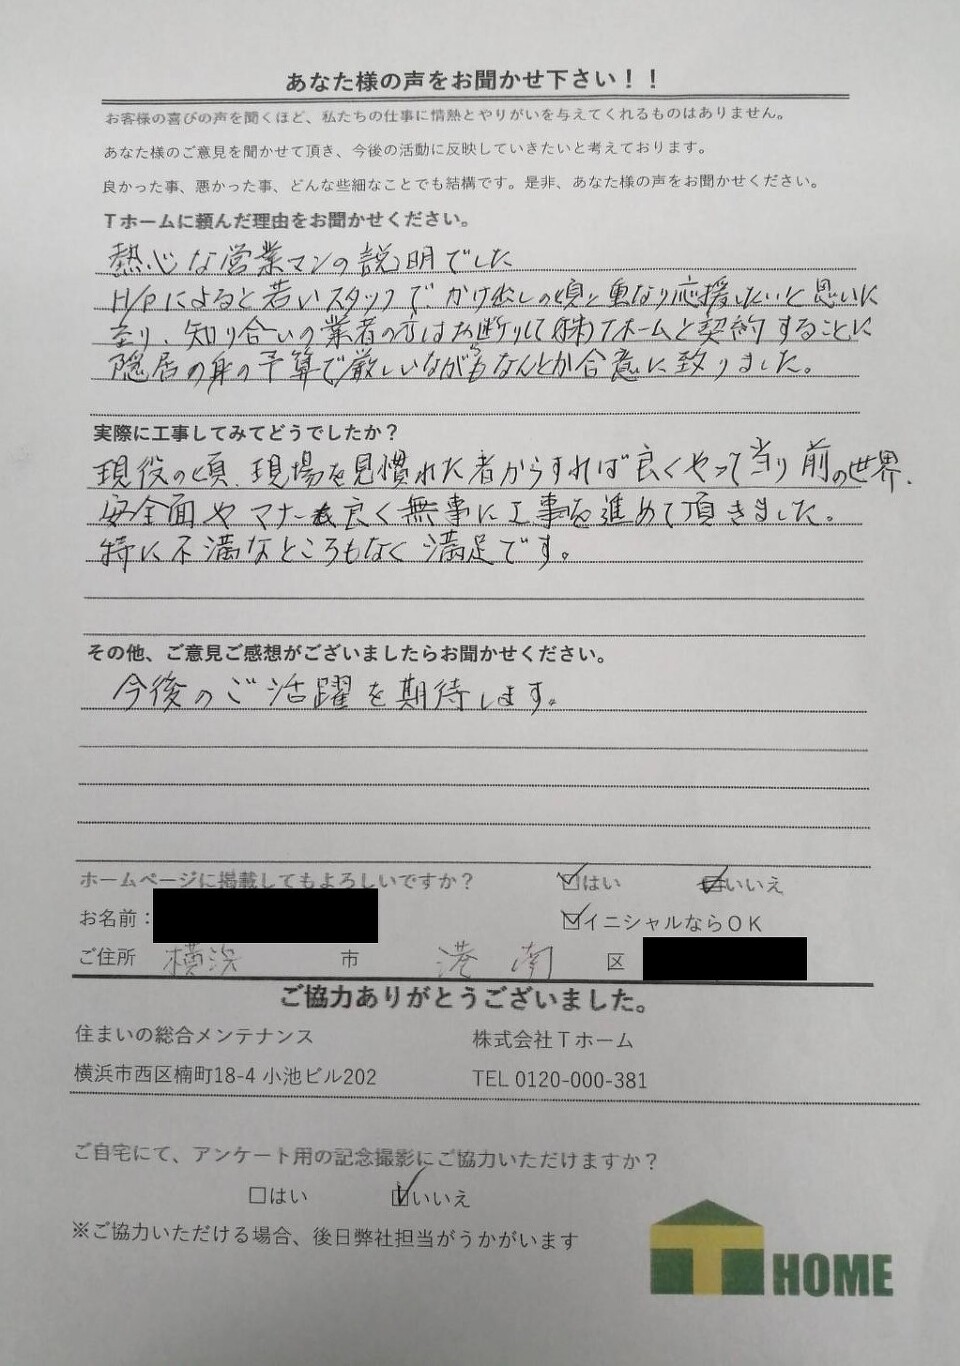 あなた様の声をお聞かせ下さい！！
お客様の喜びの声を聞くほど、私たちの仕事に情熱とやりがいを与えてくれるものはありません。
あなた様のご意見を聞かせて頂き、今後の活動に反映していきたいと考えております。
良かった事、悪かった事、どんな些細なことでも結構です。是非、あなた様の声をお聞かせください。
Ｔホームに頼んだ理由をお聞かせください。
熱心な営業マンの説明でした
H/Pによると若いスタッフで、かけ出しの頃と重なり応援したいと思いに
至り、知り合いの業者の方はお断りして(株)Tホームと契約することに
隠居の身の予算で厳しいながらもなんとか合意に致りました。
実際に工事してみてどうでしたか？
現役の頃、現場を見慣れた者からすれば良くやって当り前の世界、
安全面やマナーも良く無事に工事を進めて頂きました。
特に不満なところもなく満足です。
その他、ご意見ご感想がございましたらお聞かせください。
今後のご活躍を期待します。
ホームページに掲載してもよろしいですか？ ☑はい ☑いいえ
お名前： ☑イニシャルならＯＫ
ご住所 横浜 市 港南 区
ご協力ありがとうございました。
住まいの総合メンテナンス 株式会社Ｔホーム
横浜市西区楠町18-4 小池ビル202 TEL 0120-000-381
ご自宅にて、アンケート用の記念撮影にご協力いただけますか？
□はい ☑いいえ
※ご協力いただける場合、後日弊社担当がうかがいます
T HOME